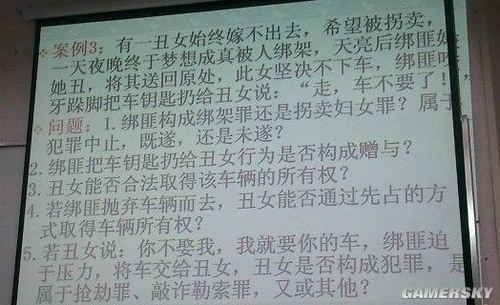 案例3：有一丑女始终嫁不出去，希望被拐卖，
一天夜晚终于梦想成真被人绑架，天亮后绑匪嫌
她丑，将其送回原处，此女坚决不下车，绑匪咬
牙跺脚把车钥匙扔给丑女说：“走，车不要了！”
问题：1.绑匪构成绑架罪还是拐卖妇女罪？属于
犯罪中止，既遂，还是未遂？
2.绑匪把车钥匙扔给丑女行为是否构成赠与？
3.丑女能否合法取得该车辆的所有权？
4.若绑匪抛弃车辆而去，丑女能否通过先占的方
式取得车辆所有权？
5.若丑女说：你不娶我，我就要你的车，绑匪迫
于压力，将车交给丑女，丑女是否构成犯罪，是
属于抢劫罪、敲诈勒索罪，又或其他？
GAMERSKY